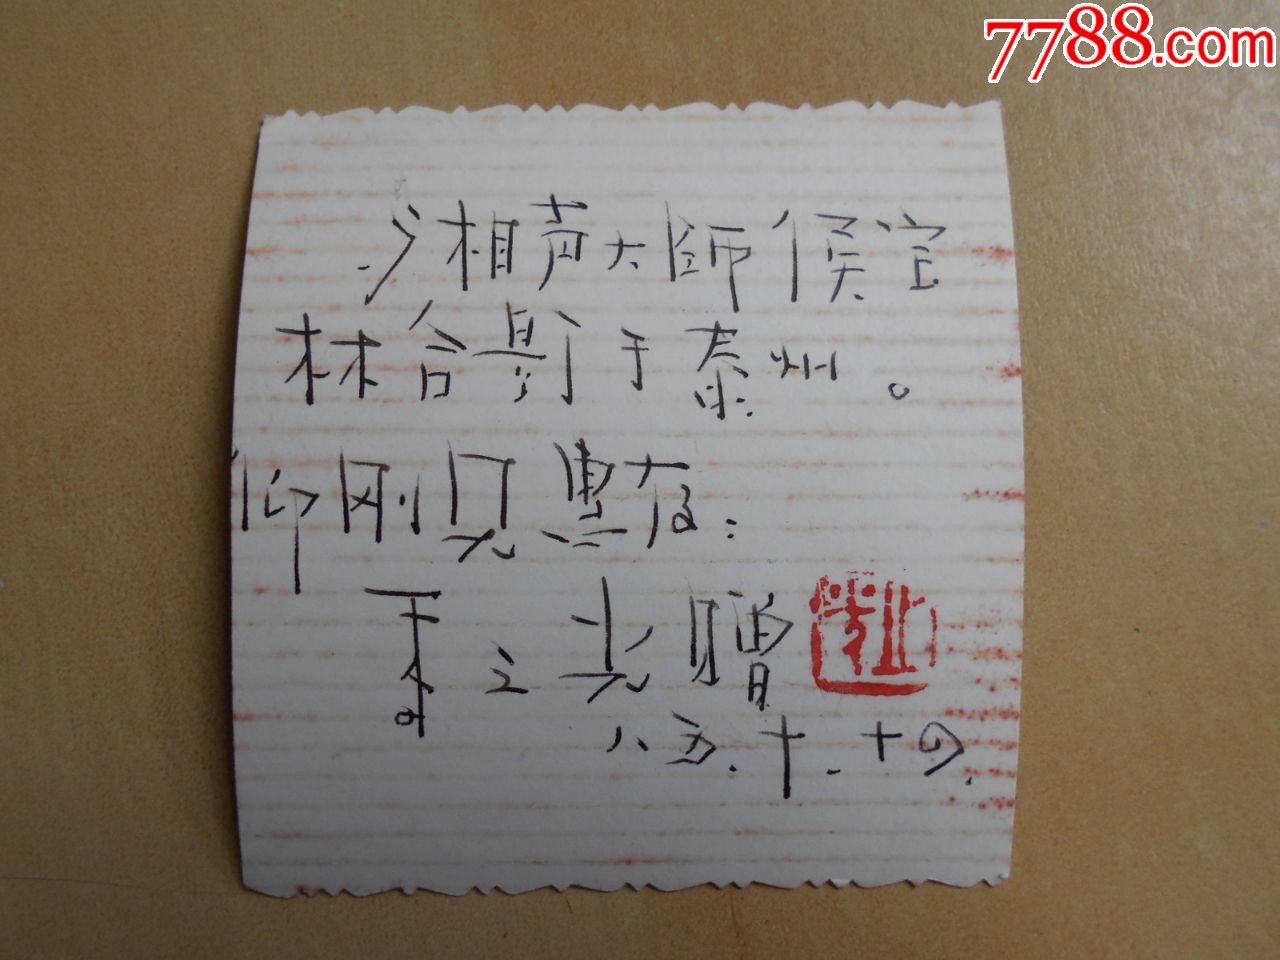 7788.com
与相声大師侯宝
林合影于泰州。
仰刚兄惠存:
之光贈
八五.十.十四.